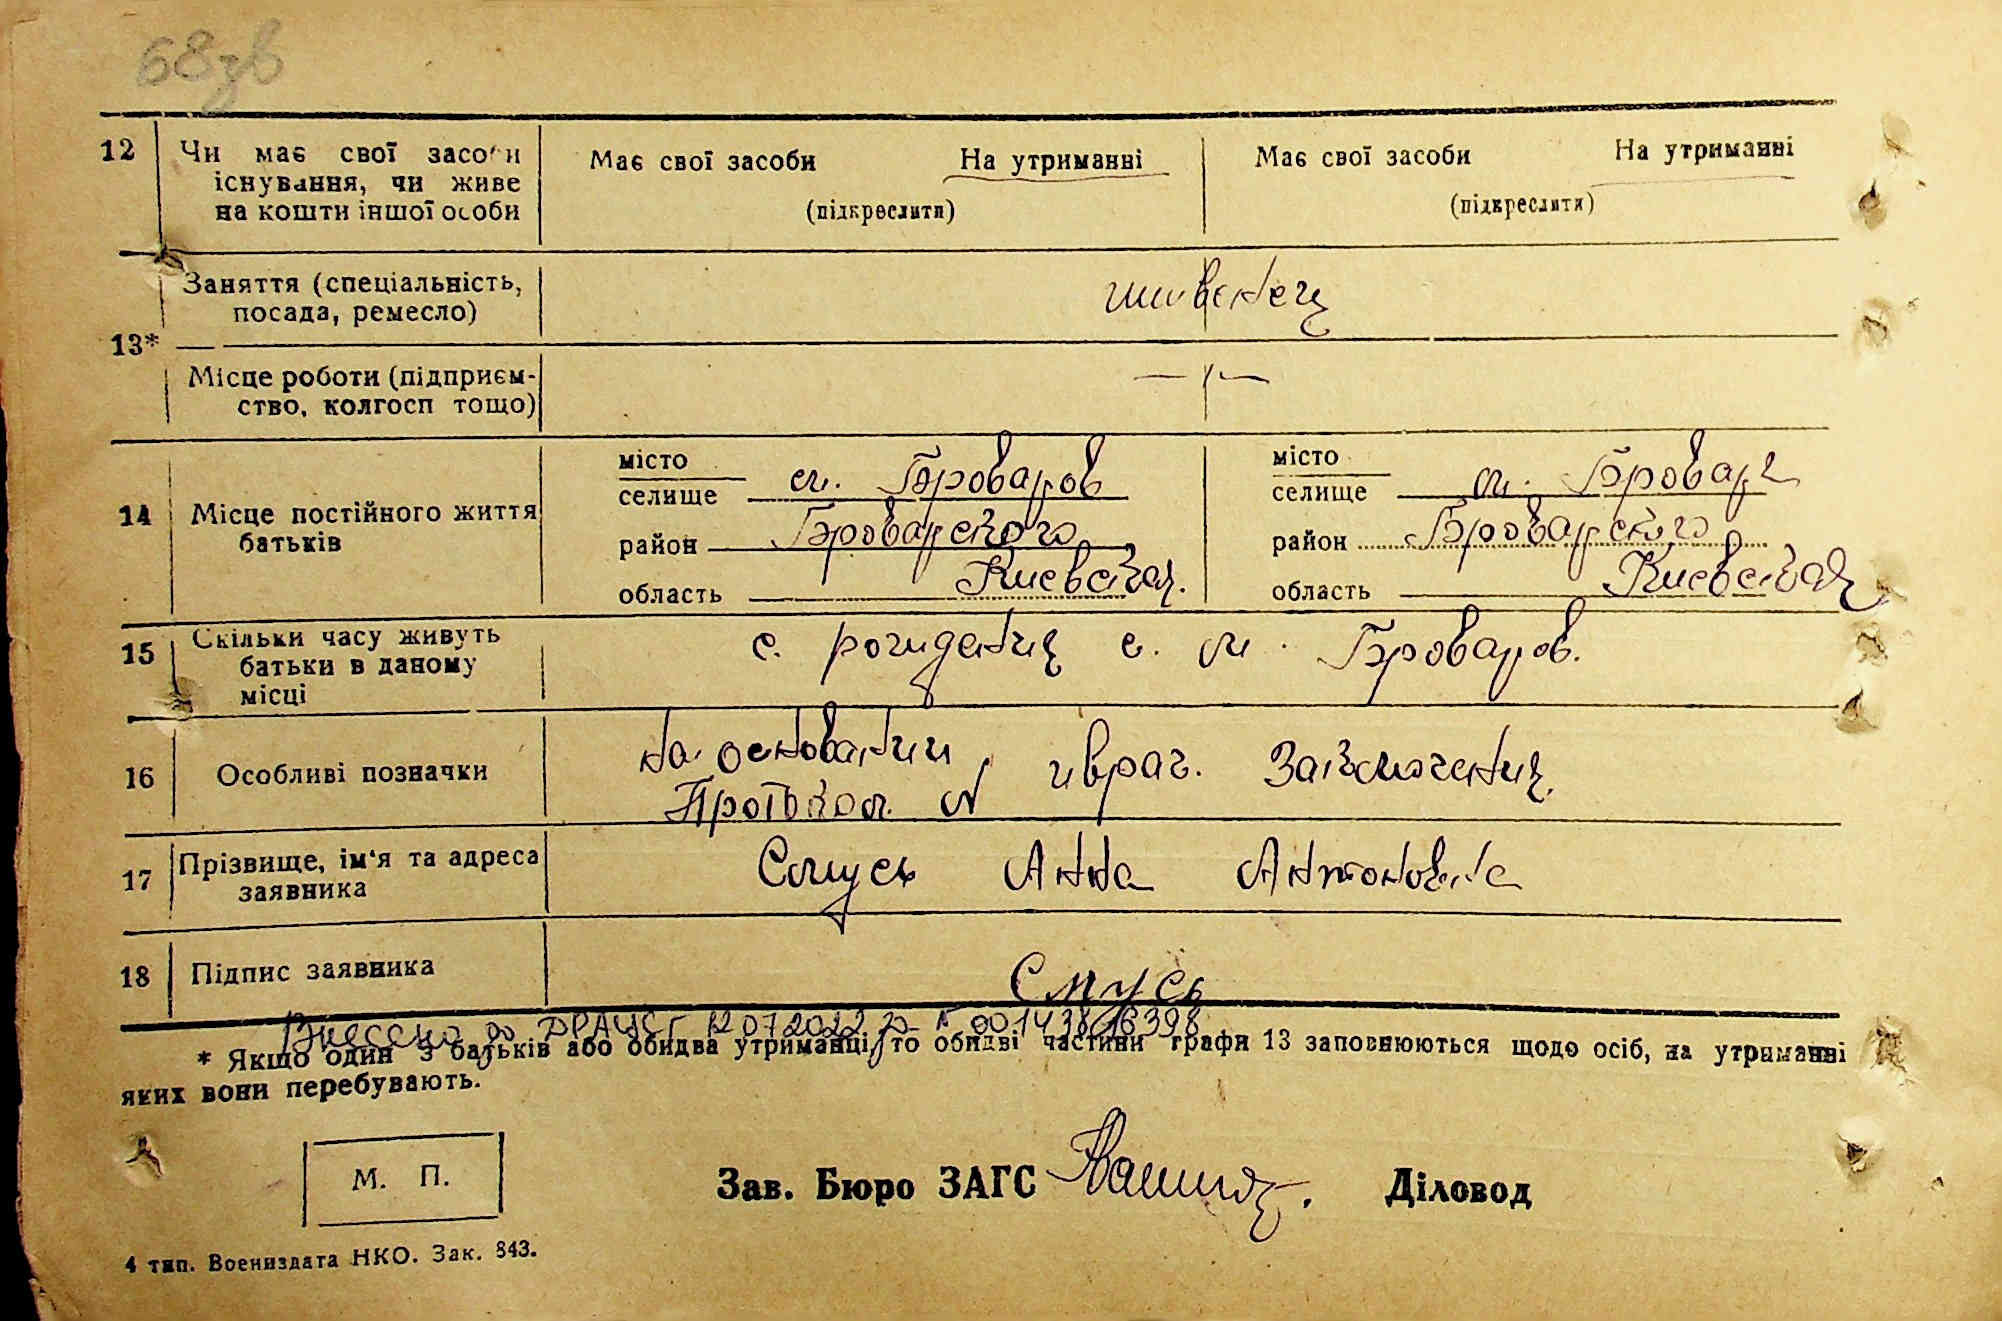 68зв
12 Чи має свої засоби Має свої засоби На утриманні Має свої засоби На утриманні
існування, чи живе
на кошти іншої особи (підкреслити) (підкреслити)
Заняття (спеціальність,
посада, ремесло)
13*
Місце роботи (підприєм-
ство, колгосп тощо)
місто місто
селище м. Броваров селище м. Бровары
14 Місце постійного життя
батьків
район Броварского район Броварского
область Киевская. область Киевская
15 Скільки часу живуть с. рождения с. м. Броваров.
батьки в даному
місці
на основании
16 Особливі позначки и врач. Заключения.
Протокол N
17 Прізвище, ім'я та адреса Смусь Анна Антоновна
заявника
18 Підпис заявника Смусь
Внесено до ДРАЦСГ 12 07 2022 р N 00143816398
* Якщо один з батьків або обидва утриманці, то обидві частини графи 13 заповнюються щодо осіб, на утриманні
яких вони перебувають.
М. П.
Зав. Бюро ЗАГС Діловод
4 тип. Воениздата НКО. Зак. 843.